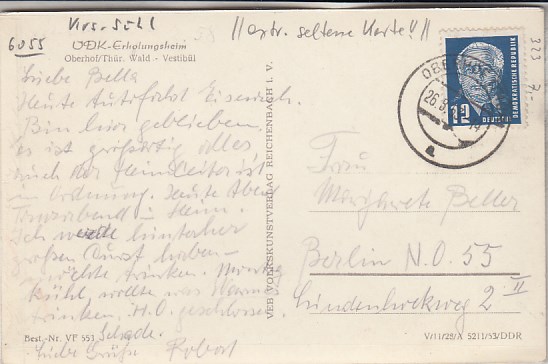 6055
Kurs-Sehl
//extr. seltene Karte!!//
323
7,-
VDK-Erholungsheim
Oberhof/Thür. Wald - Vestibül
Liebe Bella
Heute Autofahrt Eisenach.
Bin hier geblieben.
Es ist großartig alles
auch der Heimleiter ist
in Ordnung. Heute Abend
im Heim.
Ich hinterher
großen Durst haben
möchte trinken.
kühl, wollte was warmes
trinken. H.O. geschlossen.
Schade.
Liebe Grüße Robert
Best.-Nr. VP 553
VEB VOLKSKUNSTVERLAG REICHENBACH I. V.
26.8
12
DEUTSCHE
DEMOKRATISCHE REPUBLIK
Frau
Margarete Beller
Berlin N.O. 55
Lindenhoekweg 2 II
V/11/28/A 5211/53/DDR